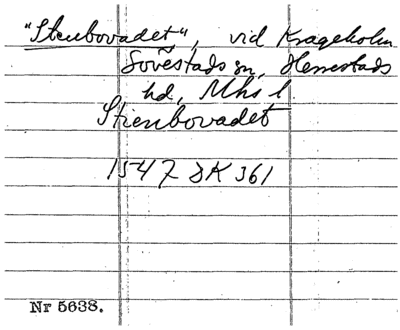 "Stenbovadet", vid Krageholm
Sövestads sn, Herrestads
hd, Mhs l.
Stienbovadet
1547 DK 361
Nr 5638.